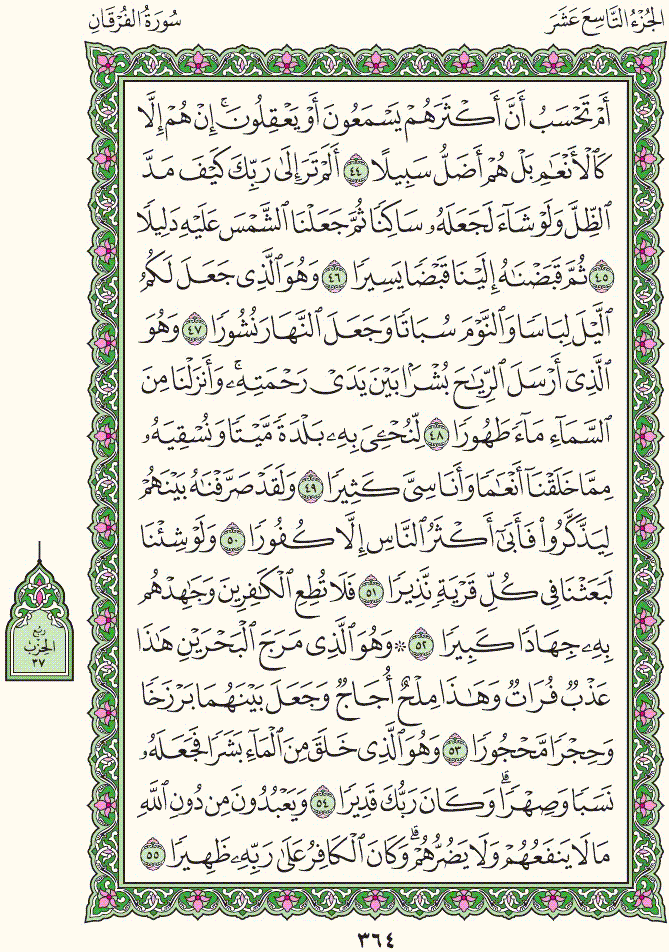 الجُزْءُ التَّاسِعَ عَشَرَ
سُورَةُ الفُرْقَانِ
أَمْ تَحْسَبُ أَنَّ أَكْثَرَهُمْ يَسْمَعُونَ أَوْ يَعْقِلُونَۚ إِنْ هُمْ إِلَّا
كَٱلْأَنْعَٰمِ بَلْ هُمْ أَضَلُّ سَبِيلًا ٤٤ أَلَمْ تَرَ إِلَىٰ رَبِّكَ كَيْفَ مَدَّ
ٱلظِّلَّ وَلَوْ شَآءَ لَجَعَلَهُۥ سَاكِنًا ثُمَّ جَعَلْنَا ٱلشَّمْسَ عَلَيْهِ دَلِيلًا
٤٥ ثُمَّ قَبَضْنَٰهُ إِلَيْنَا قَبْضًا يَسِيرًا ٤٦ وَهُوَ ٱلَّذِى جَعَلَ لَكُمُ
ٱلَّيْلَ لِبَاسًا وَٱلنَّوْمَ سُبَاتًا وَجَعَلَ ٱلنَّهَارَ نُشُورًا ٤٧ وَهُوَ
ٱلَّذِىٓ أَرْسَلَ ٱلرِّيَٰحَ بُشْرًۢا بَيْنَ يَدَىْ رَحْمَتِهِۦۚ وَأَنزَلْنَا مِنَ
ٱلسَّمَآءِ مَآءً طَهُورًا ٤٨ لِّنُحْۦِىَ بِهِۦ بَلْدَةً مَّيْتًا وَنُسْقِيَهُۥ
مِمَّا خَلَقْنَآ أَنْعَٰمًا وَأَنَاسِىَّ كَثِيرًا ٤٩ وَلَقَدْ صَرَّفْنَٰهُ بَيْنَهُمْ
لِيَذَّكَّرُوا۟ فَأَبَىٰٓ أَكْثَرُ ٱلنَّاسِ إِلَّا كُفُورًا ٥٠ وَلَوْ شِئْنَا
لَبَعَثْنَا فِى كُلِّ قَرْيَةٍ نَّذِيرًا ٥١ فَلَا تُطِعِ ٱلْكَٰفِرِينَ وَجَٰهِدْهُم
بِهِۦ جِهَادًا كَبِيرًا ٥٢ ۞ وَهُوَ ٱلَّذِى مَرَجَ ٱلْبَحْرَيْنِ هَٰذَا
عَذْبٌ فُرَاتٌ وَهَٰذَا مِلْحٌ أُجَاجٌ وَجَعَلَ بَيْنَهُمَا بَرْزَخًا
وَحِجْرًا مَّحْجُورًا ٥٣ وَهُوَ ٱلَّذِى خَلَقَ مِنَ ٱلْمَآءِ بَشَرًا فَجَعَلَهُۥ
نَسَبًا وَصِهْرًاۗ وَكَانَ رَبُّكَ قَدِيرًا ٥٤ وَيَعْبُدُونَ مِن دُونِ ٱللَّهِ
مَا لَا يَنفَعُهُمْ وَلَا يَضُرُّهُمْۗ وَكَانَ ٱلْكَافِرُ عَلَىٰ رَبِّهِۦ ظَهِيرًا ٥٥
رُبْعُ
الحِزْبِ
٣٧
٣٦٤